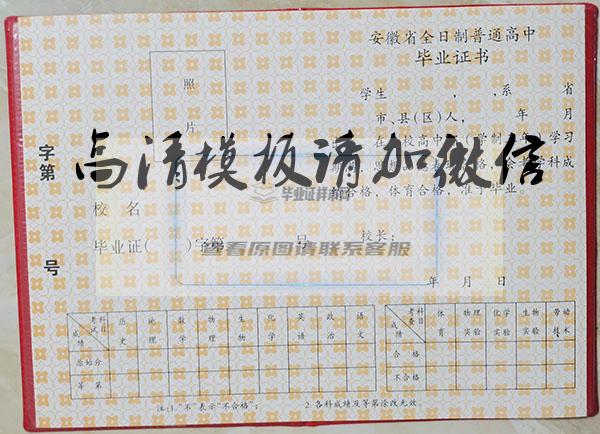 安徽省全日制普通高中
毕业证书
照
片
学生 , ,系 省
市、县(区)人, 年 月
高清模板请加微信
格,体育合格,准予毕业。
毕业证样本网
校 名
毕业证( )字第 号 校长:
查看原图请联系客服
年 月 日
字第 号
科目 考试 成绩 历史 地理 数学 物理 生物 化学 英语 政治 语文
原始分
等 第
科目 考查 成绩 体育 物理实验 化学实验 生物实验 劳动技术
合 格
不合格
注:1.“不”表示“不合格”; 2.各科成绩及等第涂改无效。